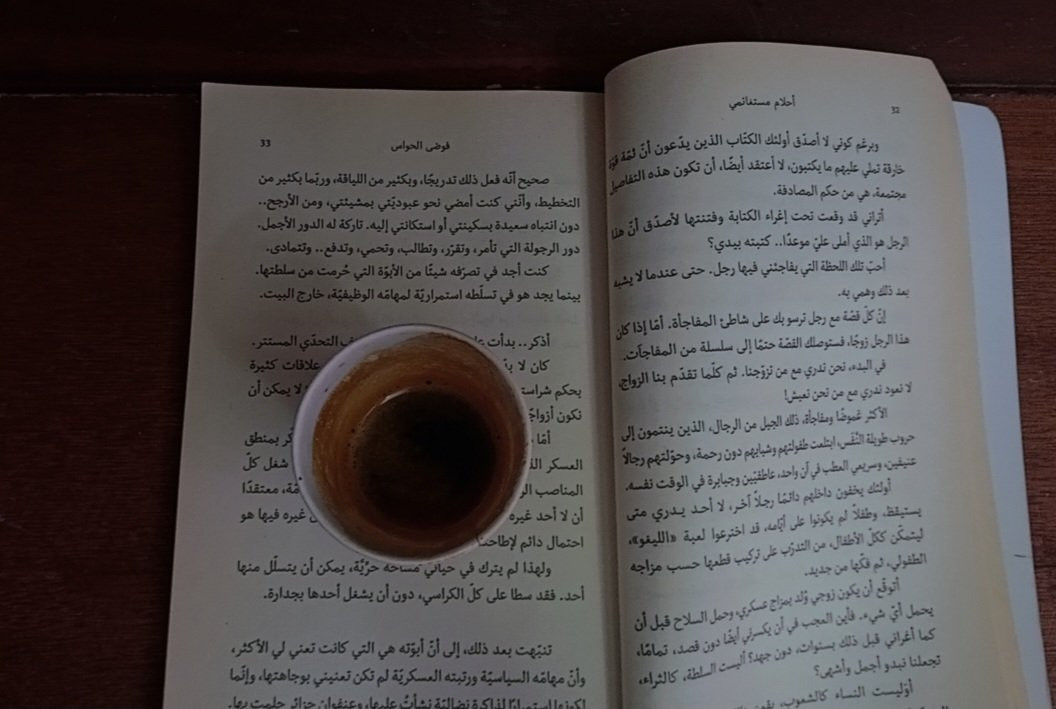 32
أحلام مستغانمي
وبرغم كوني لا أصدّق أولئك الكتّاب الذين يدّعون أنّ ثمّة قوّة
خارقة تملي عليهم ما يكتبون، لا أعتقد أيضًا، أن تكون هذه التفاصيل
مجتمعة، هي من حكم المصادفة.
أتراني قد وقعت تحت إغراء الكتابة وفتنتها لأصدّق أنّ هذا
الرجل هو الذي أملى عليّ موعدًا.. كتبته بيدي؟
أحبّ تلك اللحظة التي يفاجئني فيها رجل. حتى عندما لا يشبه
بعد ذلك وهمي به.
إنّ كلّ قصّة مع رجل ترسو بك على شاطئ المفاجأة. أمّا إذا كان
هذا الرجل زوجًا، فستوصلك القصّة حتمًا إلى سلسلة من المفاجآت.
في البدء، نحن ندري مع من تزوّجنا. ثم كلّما تقدّم بنا الزواج،
لا نعود ندري مع من نحن نعيش!
الأكثر غموضًا ومفاجأة، ذلك الجيل من الرجال، الذين ينتمون إلى
حروب طويلة النَّفَس، ابتلعت طفولتهم وشبابهم دون رحمة، وحوّلتهم رجالاً
عنيفين، وسريعي العطب في آن واحد، عاطفيّين وجبابرة في الوقت نفسه.
أولئك يخفون داخلهم دائمًا رجلاً آخر، لا أحد يدري متى
يستيقظ، وطفلاً لم يكونوا على أيّامه، قد اخترعوا لعبة «الليغو»،
ليتمكّن ككلّ الأطفال، من التدرّب على تركيب قطعها حسب مزاجه
الطفولي، ثم فكّها من جديد.
أتوقّع أن يكون زوجي وُلد بمزاج عسكري، وحمل السلاح قبل أن
يحمل أيّ شيء. فأين العجب في أن يكسرني أيضًا دون قصد، تمامًا،
كما أغراني قبل ذلك بسنوات، دون جهد؟ أليست السلطة، كالثراء،
تجعلنا نبدو أجمل وأشهى؟
أوَليست النساء كالشعوب،
فوضى الحواس
33
صحيح أنّه فعل ذلك تدريجًا، وبكثير من اللياقة، وربّما بكثير من
التخطيط، وأنّني كنت أمضي نحو عبوديّتي بمشيئتي، ومن الأرجح..
دون انتباه سعيدة بسكينتي أو استكانتي إليه. تاركة له الدور الأجمل.
دور الرجولة التي تأمر، وتقرّر، وتطالب، وتحمي، وتدفع.. وتتمادى.
كنت أجد في تصرّفه شيئًا من الأبوّة التي حُرمت من سلطتها.
بينما يجد هو في تسلّطه استمراريّة لمهامّه الوظيفيّة، خارج البيت.
أذكر.. بدأت التحدّي المستتر.
كان لا علاقات كثيرة
بحكم شراسة لا يمكن أن
نكون
أمّا بمنطق
العسكر شغل كلّ
المناصب معتقدًا
أن لا أحد غيره غيره فيها هو
احتمال دائم
ولهذا لم يترك في حياتي مساحة حرّيّة، يمكن أن يتسلّل منها
أحد. فقد سطا على كلّ الكراسي، دون أن يشغل أحدها بجدارة.
تنبّهت بعد ذلك، إلى أنّ أبوّته هي التي كانت تعني لي الأكثر،
وأنّ مهامّه السياسيّة ورتبته العسكريّة لم تكن تعنيني بوجاهتها، وإنّما
لكونها استمرارًا لذاكرة نضاليّة نشأتُ عليها، وعنفوان جزائر حلمت بها.